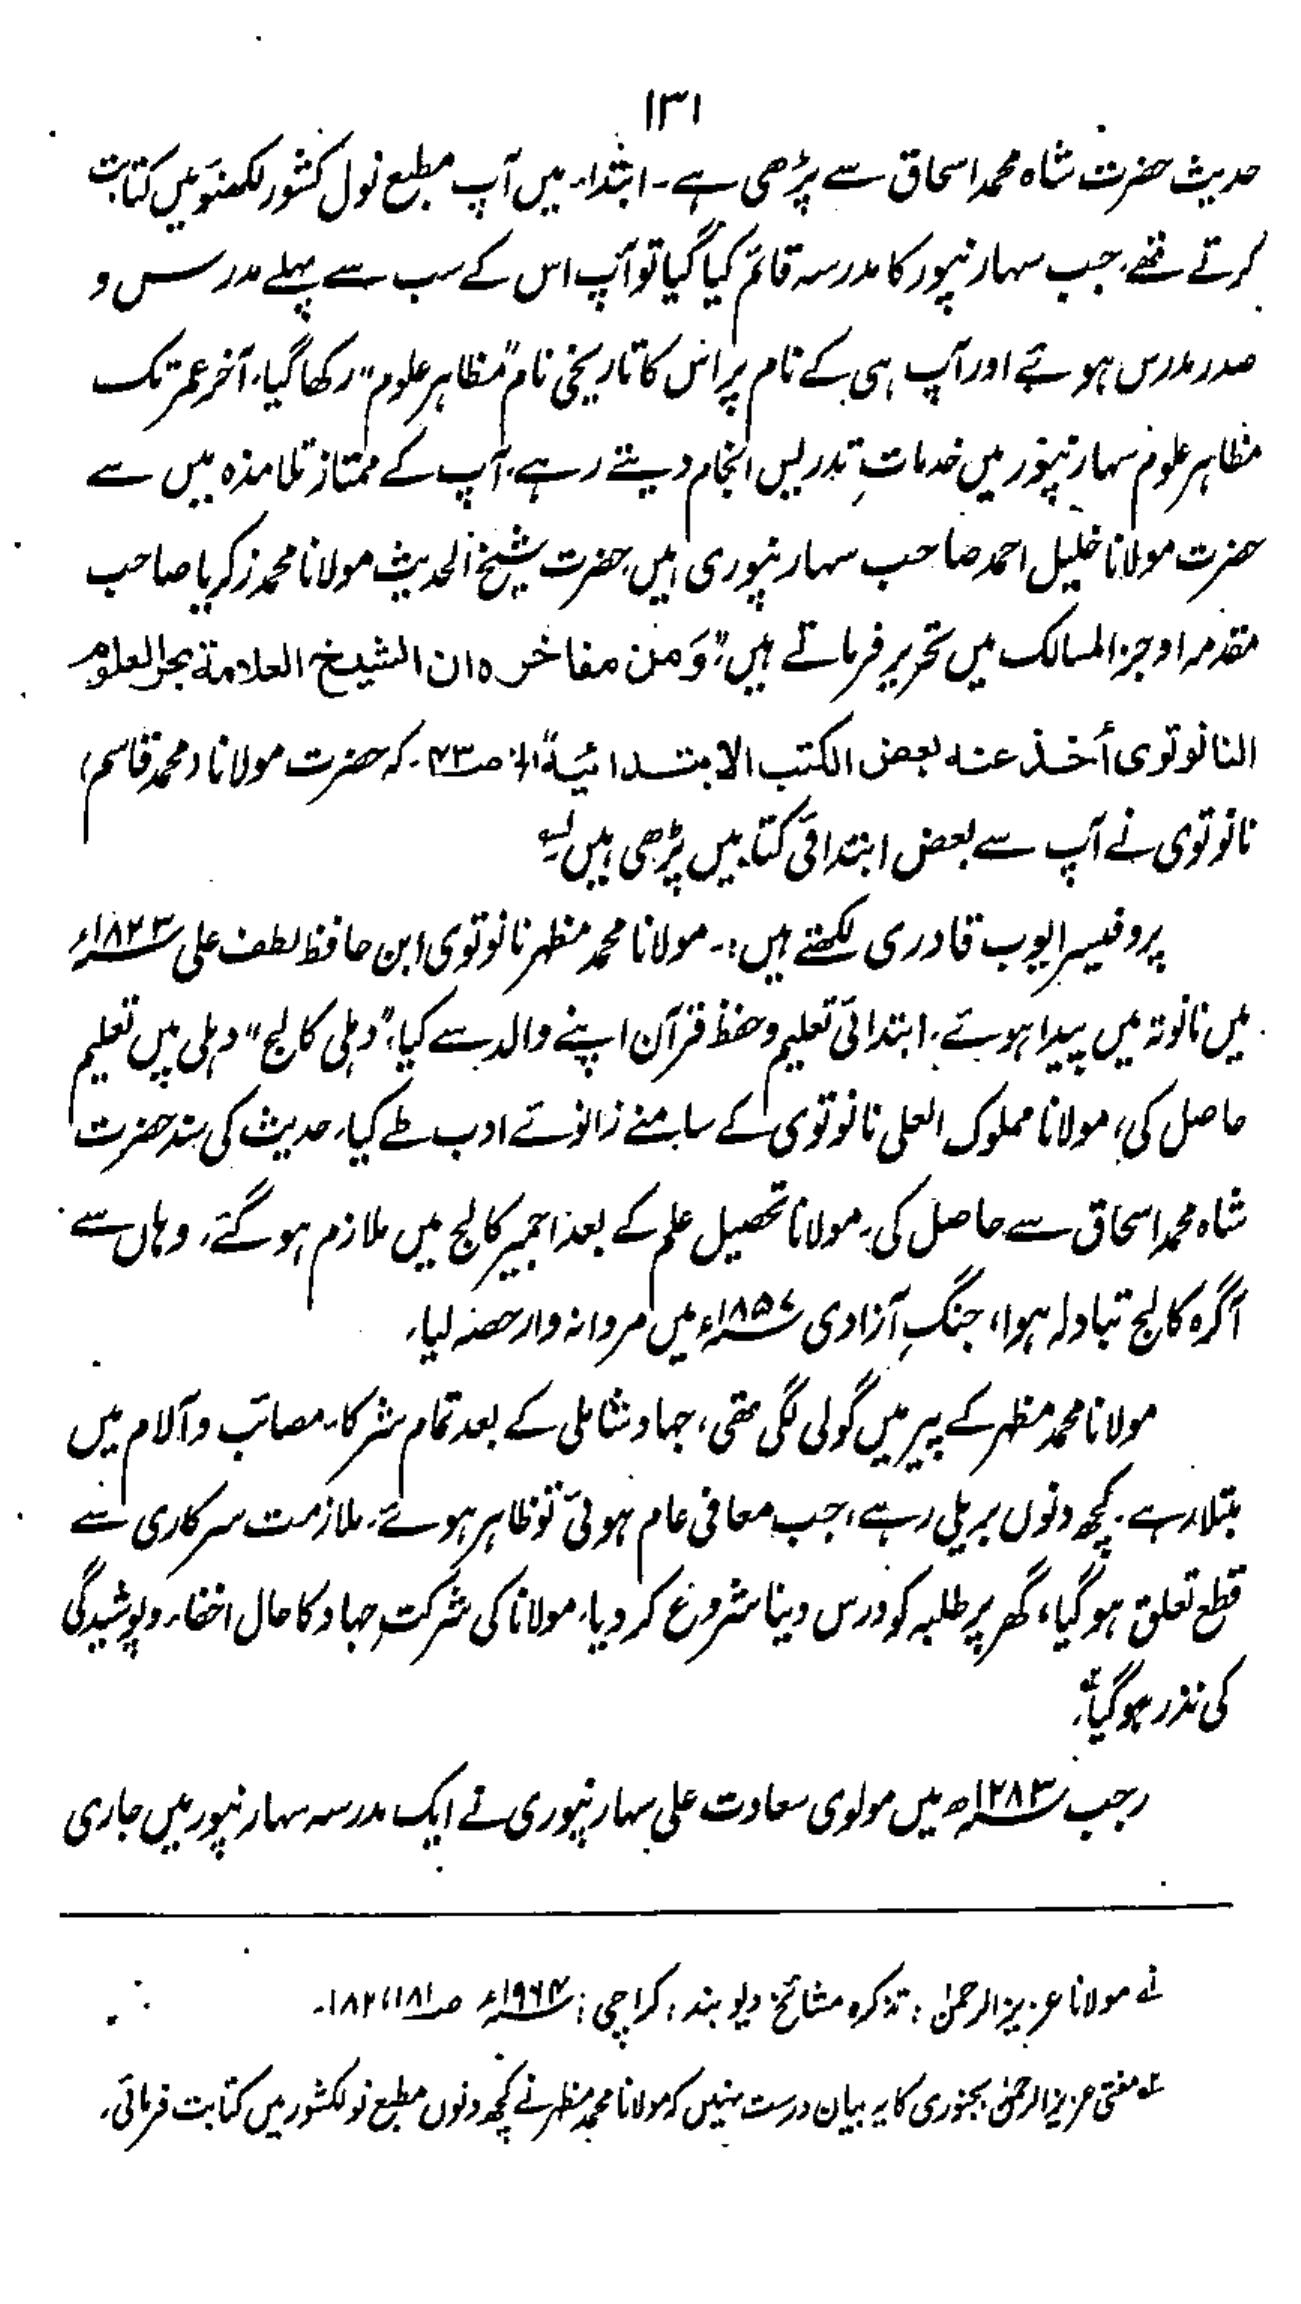 ۱۳۱
حدیث حضرت شاہ محمد اسحاق سے پڑھی ہے۔ ابتداء میں آپ مطبع نول کشور لکھنؤ میں کتابت
کرتے تھے، جب سہارنپور کا مدرسہ قائم کیا گیا تو آپ اس کے سب سے پہلے مدرس و
صدر مدرس ہوئے اور آپ ہی کے نام پر اس کا تاریخی نام "مظاہر علوم" رکھا گیا، آخر عمر تک
مظاہر علوم سہارنپور میں خدماتِ تدریس انجام دیتے رہے، آپ کے ممتاز تلامذہ میں سے
حضرت مولانا خلیل احمد صاحب سہارنپوری ہیں، حضرت شیخ الحدیث مولانا محمد زکریا صاحب
مقدمہ اوجز المسالک میں تحریر فرماتے ہیں: "وَمن مفاخره ان الشیخ العلامة بحر العلوم
النانوتوی أخذ عنه بعض الکتب الابتدائیة" الخ ص۴۳۔ کہ حضرت مولانا (محمد قاسم)
نانوتوی نے آپ سے بعض ابتدائی کتابیں پڑھی ہیں لہ
پروفیسر ایوب قادری لکھتے ہیں:۔ مولانا محمد مظہر نانوتوی ابن حافظ لطف علی ۱۸۲۳ء
میں نانوتہ میں پیدا ہوئے، ابتدائی تعلیم و حفظ قرآن اپنے والد سے کیا، "دہلی کالج" دہلی میں تعلیم
حاصل کی، مولانا مملوک العلی نانوتوی کے سامنے زانوئے ادب طے کیا، حدیث کی سند حضرت
شاہ محمد اسحاق سے حاصل کی، مولانا تحصیل علم کے بعد اجمیر کالج میں ملازم ہو گئے، وہاں سے
آگرہ کالج تبادلہ ہوا، جنگِ آزادی ۱۸۵۷ء میں مردانہ وار حصہ لیا،
مولانا محمد مظہر کے پیر میں گولی لگی تھی، جہاد شاملی کے بعد تمام شرکاء مصائب و آلام میں
مبتلا رہے، کچھ دنوں بریلی رہے، جب معافی عام ہوئی تو ظاہر ہوئے، ملازمت سرکاری سے
قطع تعلق ہو گیا، گھر پر طلبہ کو درس دینا شروع کر دیا، مولانا کی شرکتِ جہاد کا حال اخفاء و پوشیدگی
کی نذر ہو گیا،
رجب ۱۲۸۳ھ میں مولوی سعادت علی سہارنپوری نے ایک مدرسہ سہارنپور میں جاری
لے مولانا عزیز الرحمٰن: تذکرہ مشائخ دیوبند: کراچی: ۱۹۶۴ء ص ۱۸۱، ۱۸۲۔
لے مفتی عزیز الرحمٰن بجنوری کا یہ بیان درست نہیں کہ مولانا محمد مظہر نے کچھ دنوں مطبع نولکشور میں کتابت فرمائی،